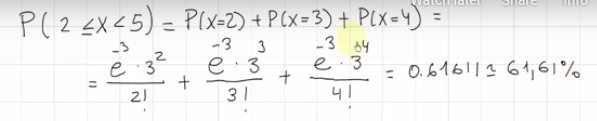 Watch later Share
P(2 ≤ x < 5) = P(x=2) + P(x=3) + P(x=4) =
= e^-3 · 3^2 / 2! + e^-3 · 3^3 / 3! + e^-3 · 3^4 / 4! = 0.61611 ≅ 61,61%